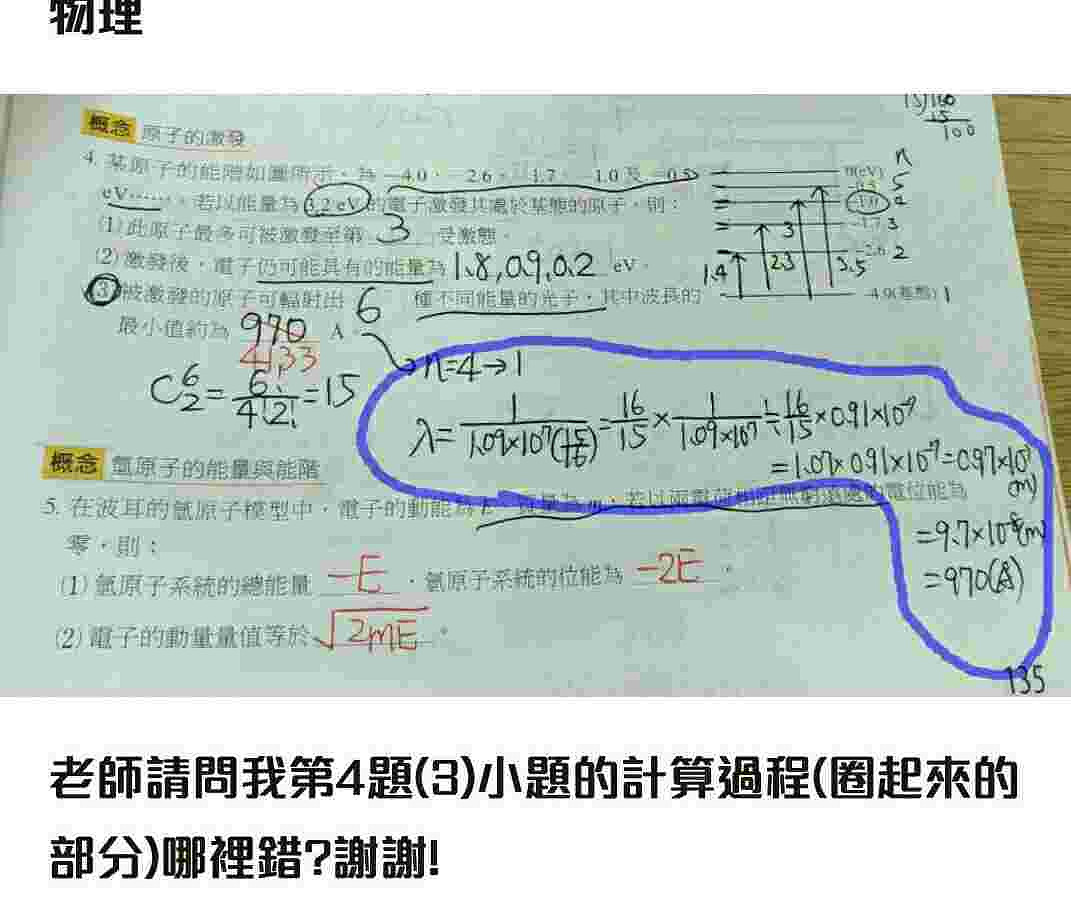 物理
概念 原子的激發
15)160
15
100
4. 某原子的能階如圖所示,為 -4.0、-2.6、-1.7、-1.0 及 -0.5
eV……。若以能量為 3.2 eV 的電子激發其處於基態的原子,則:
(1) 此原子最多可被激發至第 3 受激態。
(2) 激發後,電子仍可能具有的能量為 1.8,0.9,0.2 eV。
(3) 被激發的原子可輻射出 6 種不同能量的光子,其中波長的
最小值約為 970 Å
4133
n
0(eV)
-0.5 5
-1.0 4
-1.7 3
-2.6 2
-4.0(基態) 1
1.4 2.3 3 3.5
n=4→1
λ= 1/1.09×10⁷(15/16) = 16/15 × 1/1.09×10⁷ ≒ 16/15 ×0.91×10⁻⁷
=1.07×0.91×10⁻⁷=0.97×10⁻⁷
(m)
=9.7×10⁻⁸(m)
=970(Å)
C⁶₂= 6!/4!2! =15
概念 氫原子的能量與能階
5. 在波耳的氫原子模型中,電子的動能為 E、質量為 m,若以兩電荷相距無窮遠處的電位能為
零,則:
(1) 氫原子系統的總能量 -E ,氫原子系統的位能為 -2E 。
(2) 電子的動量量值等於 √2mE 。
135
老師請問我第4題(3)小題的計算過程(圈起來的
部分)哪裡錯?謝謝!